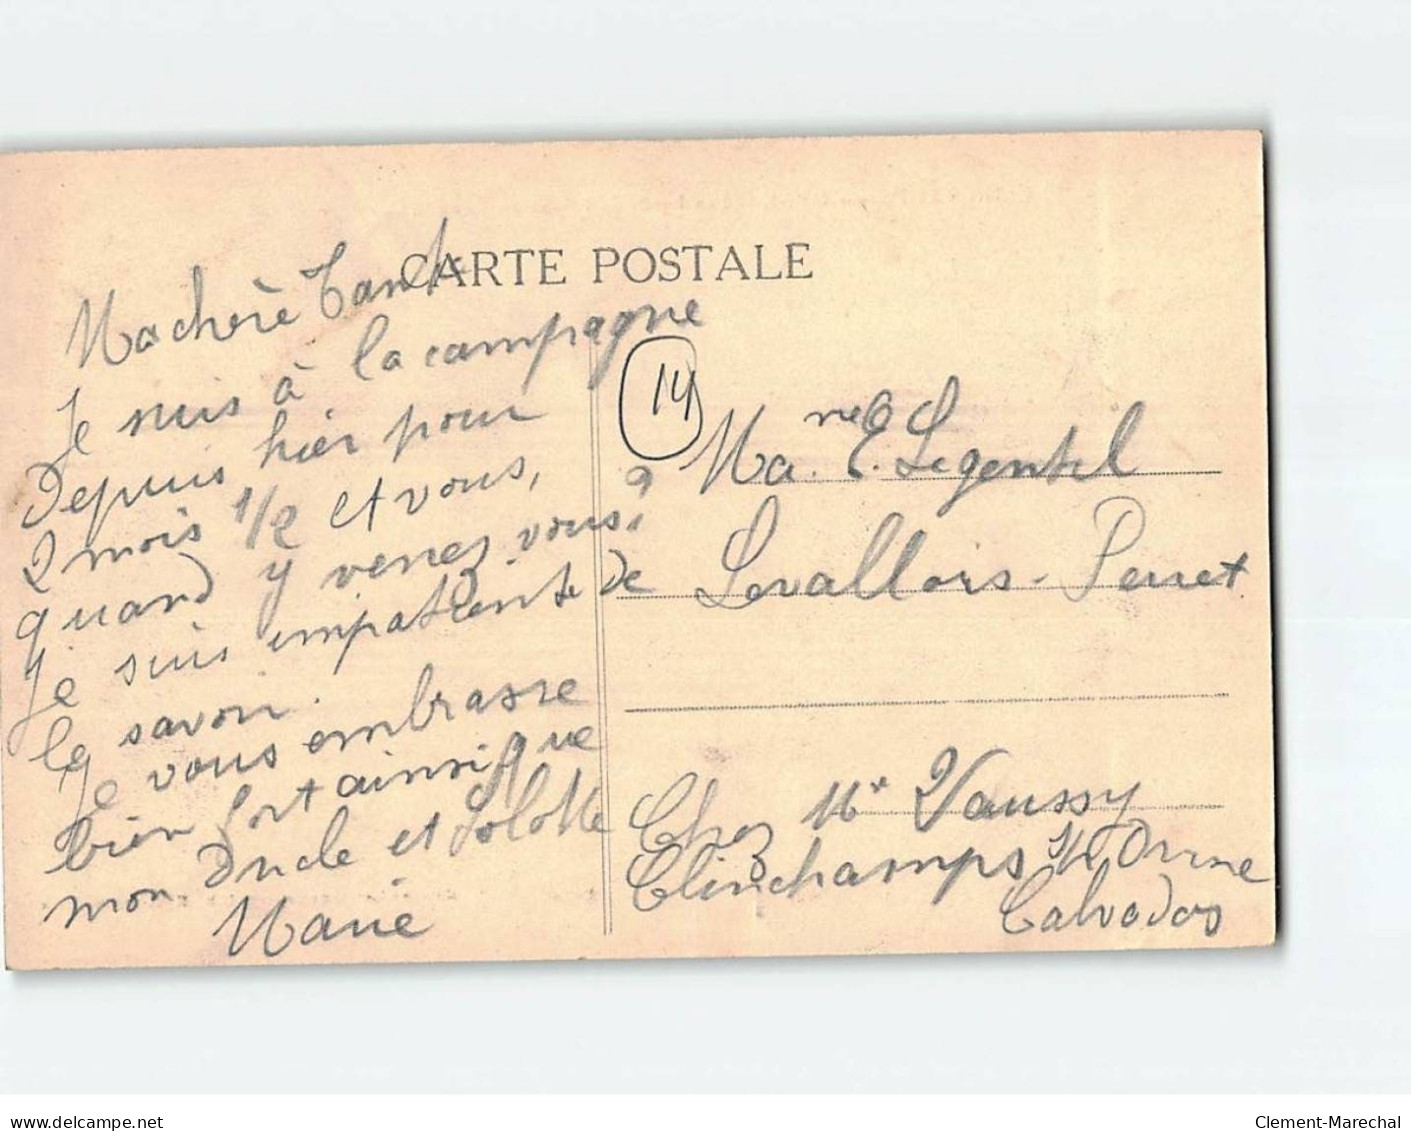 CARTE POSTALE
Ma chère Tante
Je suis à la campagne
Depuis hier pour
2 mois 1/2 et vous,
quand y venez vous?
Je suis impatiente de
le savoir.
Je vous embrasse
bien fort ainsi que
mon Oncle et Lolotte
Marie
14
Ma.me E. Legentil
Levallois-Perret
Chez Mr Vaussy
Clinchamps s/ Orne
Calvados
delcampe.net
Clement-Marechal